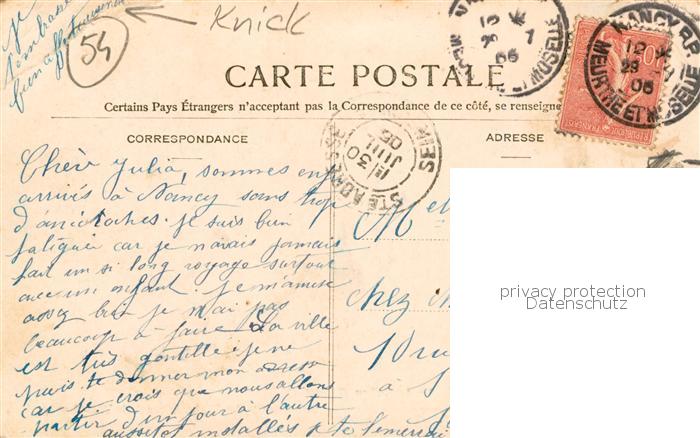 je
t'embrasse
bien affectueusement
54
Knick
NANCY R.P.
12
29 -7
05
MEURTHE ET MOSELLE
12
29 7
05
ET MOSELLE
CARTE POSTALE
Certains Pays Étrangers n'acceptant pas la Correspondance de ce côté, se renseigne
CORRESPONDANCE
ADRESSE
STE ADRESSE
30
JUIL
05
SEIN
RÉPUBLIQUE FRANÇAISE
10
Chère Julia, sommes enfin
arrivés à Nancy sans trop
d'anicroches. je suis bien
fatiguée car je n'avais jamais
fait un si long voyage surtout
avec un enfant. je m'amuse
assez bien je n'ai pas
beaucoup à faire La ville
est très gentille. je ne
puis te donner mon adresse
car je crois que nous allons
partir d'un jour à l'autre
aussitôt installés je te l'enverrai
Melle
chez
10 ru
à
privacy protection
Datenschutz